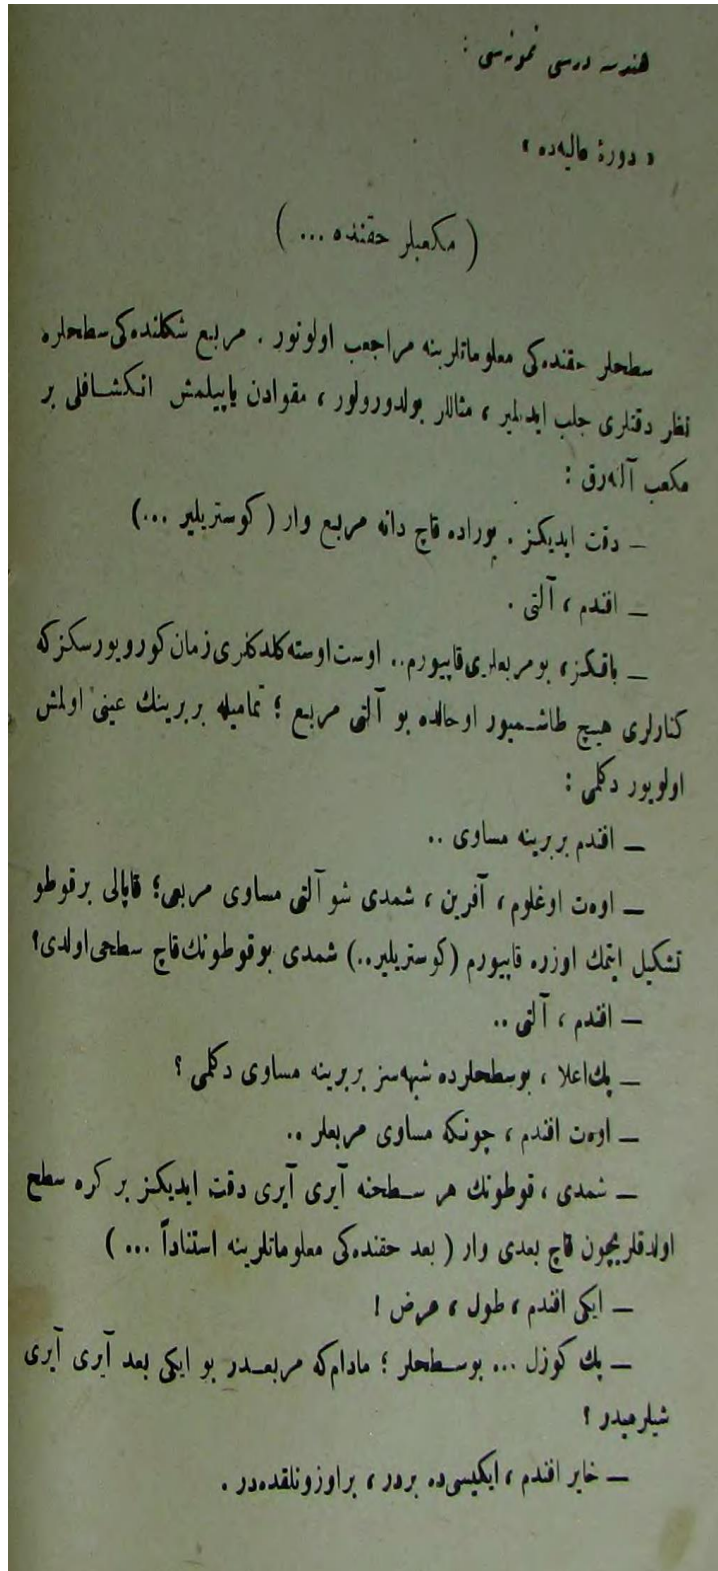 هندسه درسی نمونه‌سی :
« دورهٔ عالیه‌ده »
( مکعبلر حقنده ... )
سطحلر حقنده‌کی معلوماتلرینه مراجعب اولونور . مربع شکلنده‌کی سطحلره
نظر دقتلری جلب ایدیلیر ، مثاللر بولدورولور ، مقوادن یاپیلمش انکشافلی بر
مکعب آله‌رق :
— دقت ایدیکز . بوراده قاچ دانه مربع وار ( کوستریلیر ...)
— افندم ، آلتی .
— باقکز ، بومربعلری قاپیورم .. اوست اوسته کلدکلری زمان کورویورسکزکه
کنارلری هیچ طاشمیور اوحالده بو آلتی مربع ؛ تمامیله بربرینك عینی اولمش
اولویور دکلمی :
— افندم بربرینه مساوی ..
— اوەت اوغلوم ، آفرین ، شمدی شو آلتی مساوی مربعی ؛ قاپالی برقوطو
تشکیل ایتمك اوزره قاپیورم (کوستریلیر..) شمدی بوقوطونك قاچ سطحی اولدی ؟
— افندم ، آلتی ..
— پك اعلا ، بوسطحلرده شبهه‌سز بربرینه مساوی دکلمی ؟
— اوەت افندم ، چونکه مساوی مربعلر ..
— شمدی ، قوطونك هر سطحنه آیری آیری دقت ایدیکز بر کره سطح
اولدقلریچون قاچ بعدی وار ( بعد حقنده‌کی معلوماتلرینه استناداً ... )
— ایکی افندم ، طول ، عرض !
— پك کوزل ... بوسطحلر ؛ مادام‌که مربعدر بو ایکی بعد آیری آیری
شیلرمیدر ؟
— خایر افندم ، ایکیسی‌ده بردر ، براوزونلقده‌در .